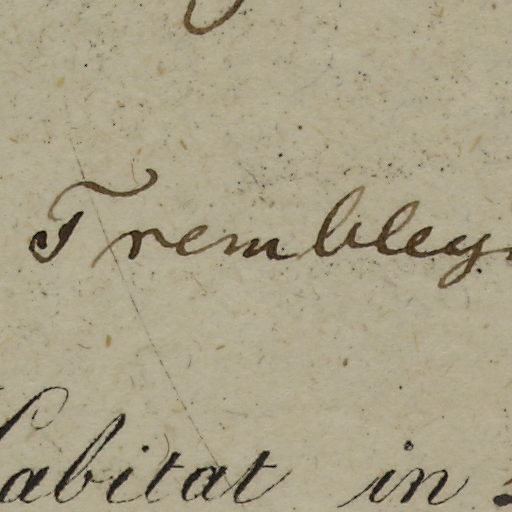 Trembley
Habitat in